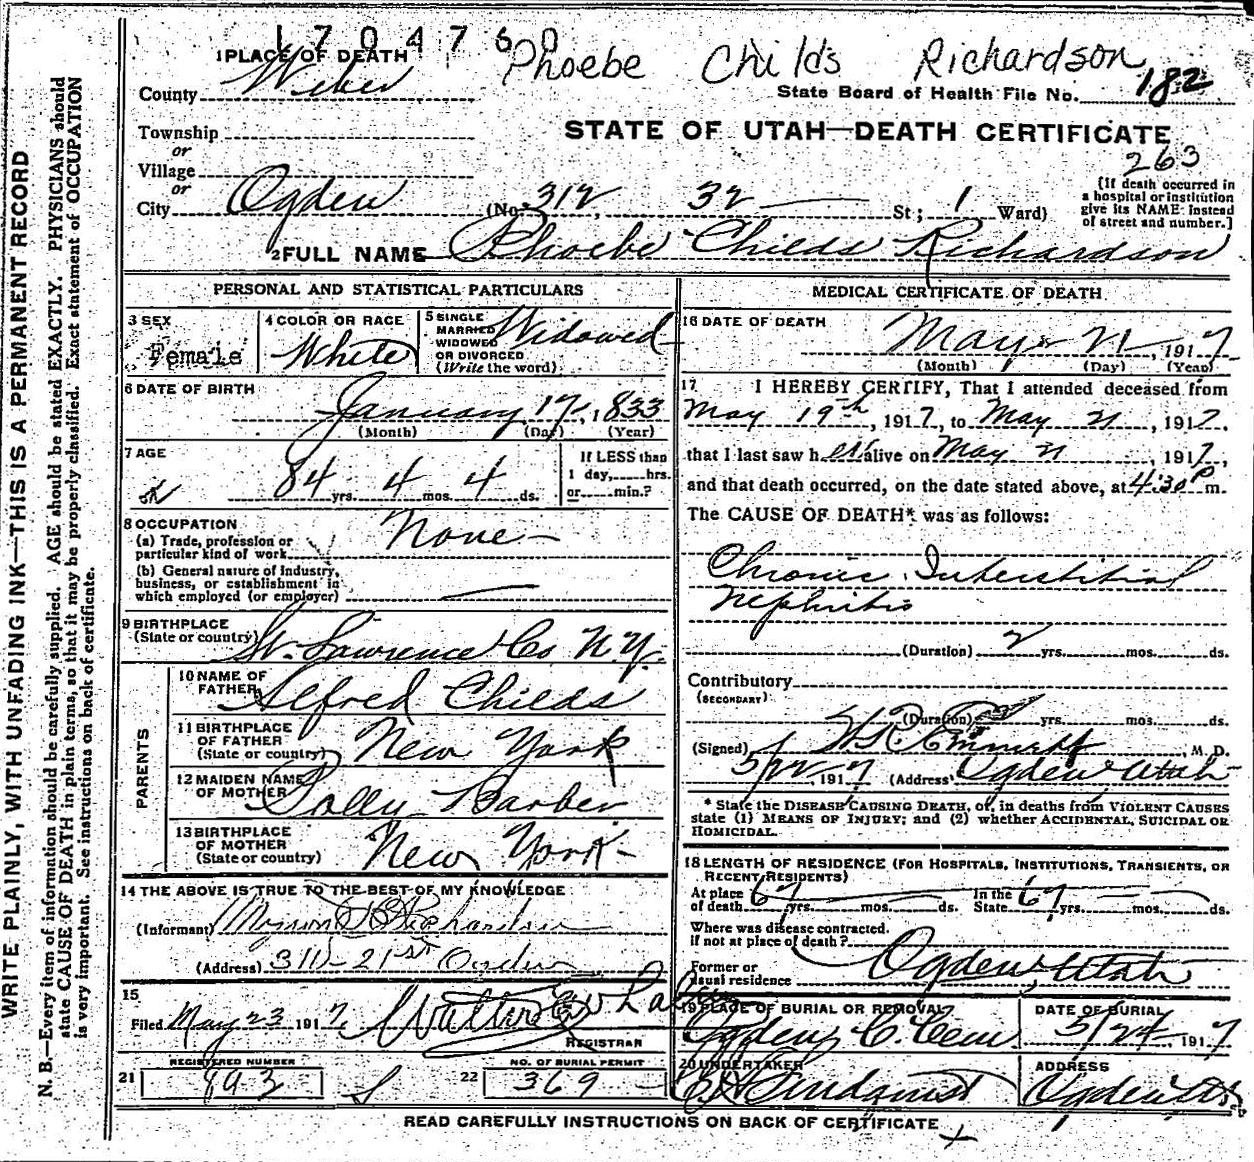 1704760
Phoebe Childs Richardson
1 PLACE OF DEATH
County Weber
State Board of Health File No. 182
Township
or
STATE OF UTAH—DEATH CERTIFICATE
263
Village
or
City Ogden (No. 312, 32 St; 1 Ward)
[If death occurred in a hospital or institution give its NAME instead of street and number.]
2 FULL NAME Phoebe Childs Richardson
PERSONAL AND STATISTICAL PARTICULARS
3 SEX
Female
4 COLOR OR RACE
White
5 SINGLE
MARRIED
WIDOWED
OR DIVORCED
(Write the word)
Widowed
6 DATE OF BIRTH
January 17, 1833
(Month) (Day) (Year)
7 AGE
84 yrs. 4 mos. 4 ds.
If LESS than
1 day,......hrs.
or......min.?
8 OCCUPATION
(a) Trade, profession or
particular kind of work
None
(b) General nature of industry,
business, or establishment in
which employed (or employer)
9 BIRTHPLACE
(State or country) St. Lawrence Co N.Y.
PARENTS
10 NAME OF
FATHER Alfred Childs
11 BIRTHPLACE
OF FATHER
(State or country) New York
12 MAIDEN NAME
OF MOTHER Polly Barber
13 BIRTHPLACE
OF MOTHER
(State or country) New York
14 THE ABOVE IS TRUE TO THE BEST OF MY KNOWLEDGE
(Informant) Myron Richardson
(Address) 21st Ogden
15
Filed May 23 1917, Walter
REGISTRAR
REGISTERED NUMBER
21 893
NO. OF BURIAL PERMIT
22 369
MEDICAL CERTIFICATE OF DEATH
16 DATE OF DEATH
May 21, 1917
(Month) (Day) (Year)
17 I HEREBY CERTIFY, That I attended deceased from
May 19th, 1917, to May 21, 1917,
that I last saw her alive on May 21, 1917,
and that death occurred, on the date stated above, at 4:30 P m.
The CAUSE OF DEATH* was as follows:
Chronic Interstitial
Nephritis
(Duration) 2 yrs. mos. ds.
Contributory
(SECONDARY)
(Duration) yrs. mos. ds.
(Signed) Emmett, M. D.
5/22 1917 (Address) Ogden Utah
* State the DISEASE CAUSING DEATH, or, in deaths from VIOLENT CAUSES
state (1) MEANS OF INJURY; and (2) whether ACCIDENTAL, SUICIDAL OR
HOMICIDAL.
18 LENGTH OF RESIDENCE (FOR HOSPITALS, INSTITUTIONS, TRANSIENTS, OR
RECENT RESIDENTS)
At place
of death 67 yrs. mos. ds. In the
State 67 yrs. mos. ds.
Where was disease contracted.
if not at place of death?
Former or
usual residence Ogden, Utah
19 PLACE OF BURIAL OR REMOVAL
Ogden C. Cem
DATE OF BURIAL
5/24 1917
20 UNDERTAKER
Lindquist
ADDRESS
Ogden Ut.
READ CAREFULLY INSTRUCTIONS ON BACK OF CERTIFICATE
WRITE PLAINLY, WITH UNFADING INK—THIS IS A PERMANENT RECORD
N. B.—Every item of information should be carefully supplied. AGE should be stated EXACTLY. PHYSICIANS should
state CAUSE OF DEATH in plain terms, so that it may be properly classified. Exact statement of OCCUPATION
is very important. See instructions on back of certificate.